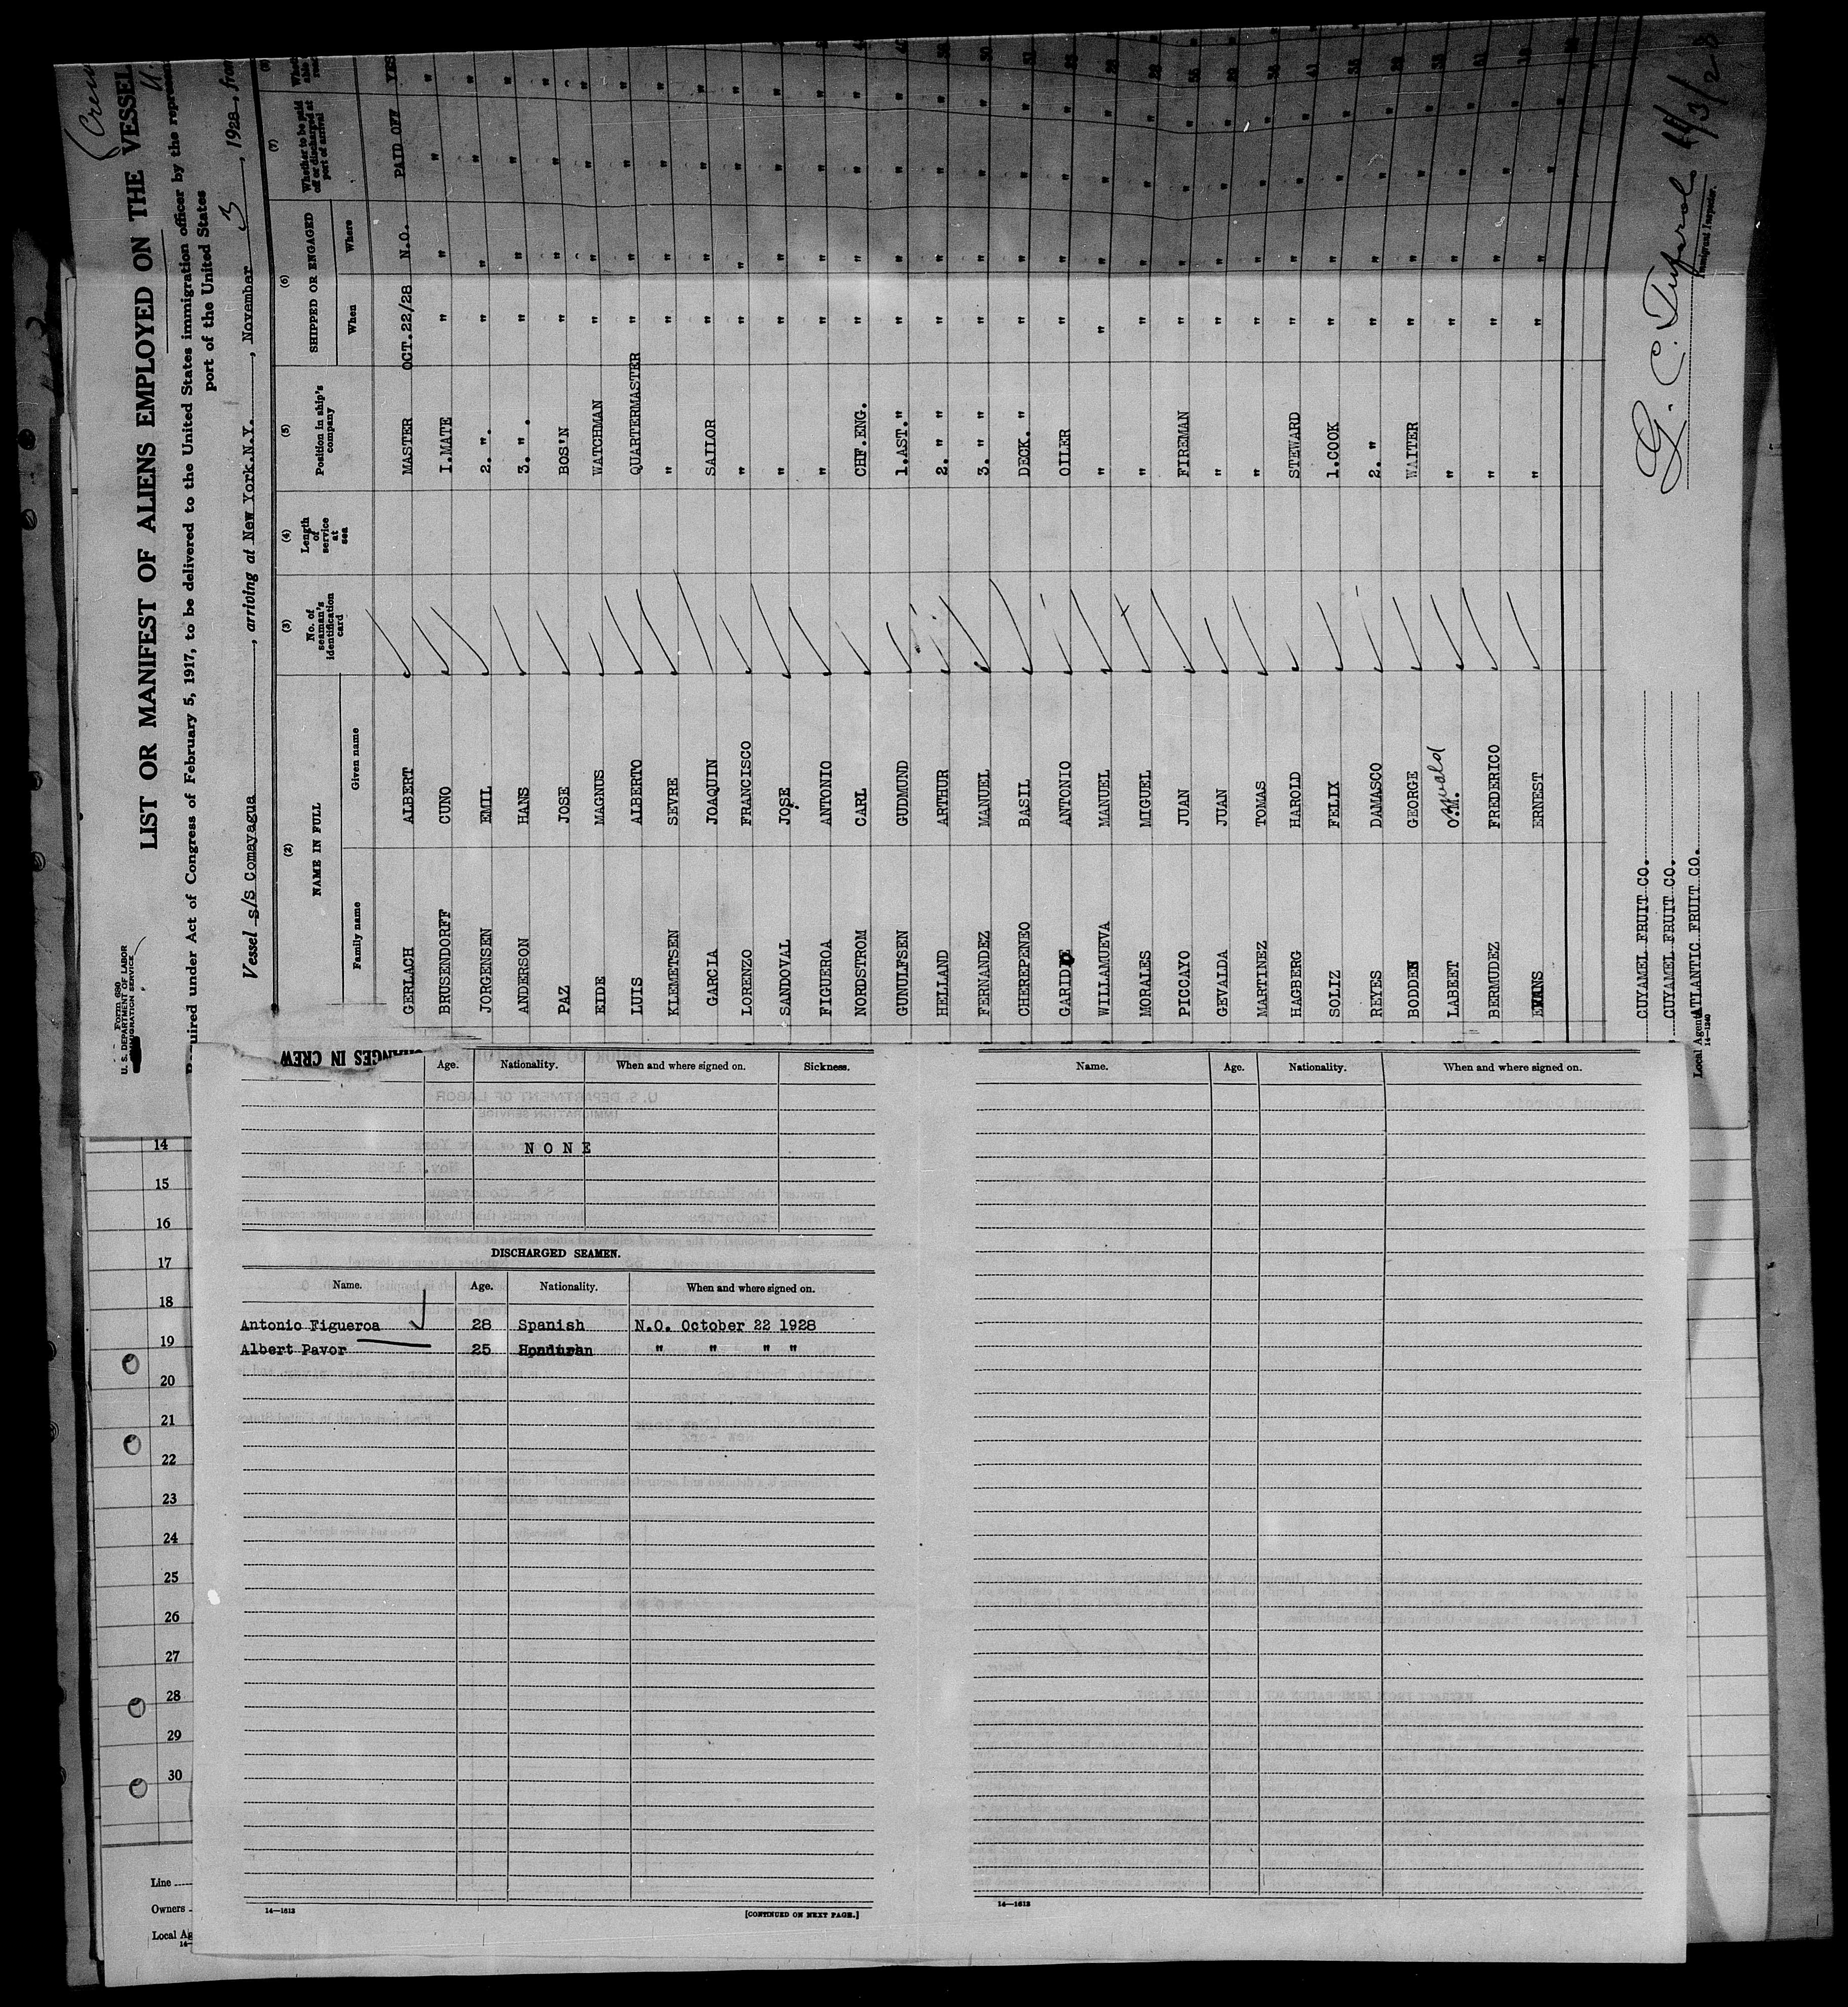 (Crew
Form 680
U. S. DEPARTMENT OF LABOR
IMMIGRATION SERVICE
LIST OR MANIFEST OF ALIENS EMPLOYED ON THE VESSEL
Required under Act of Congress of February 5, 1917, to be delivered to the United States immigration officer by the
port of the United States
Vessel s/s Comayagua, arriving at New York.N.Y., November 3, 1928, from
(2) (3) (4) (5) (6) (7) (8)
NAME IN FULL No. of seaman's identification card Length of service at sea Position in ship's company SHIPPED OR ENGAGED Whether to be paid off or discharged at port of arrival
Family name Given name When Where
GERLACH ALBERT MASTER OCT.22/28 N.O. PAID OFF YES
BRUSENDORFF CUNO 1.MATE " " " "
JORGENSEN EMIL 2. ". " " " "
ANDERSON HANS 3. ". " " " "
PAZ JOSE BOS'N " " " "
EIDE MAGNUS WATCHMAN " " " "
LUIS ALBERTO QUARTERMASTER " " " "
KLEMETSEN SEVRE " " " " "
GARCIA JOAQUIN SAILOR " " " "
LORENZO FRANCISCO " " " " "
SANDOVAL JOSE " " " " "
FIGUEROA ANTONIO " " " " "
NORDSTROM CARL CHF.ENG. " " " "
GUNULFSEN GUDMUND 1.AST." " " " "
HELLAND ARTHUR 2. " " " " " "
FERNANDEZ MANUEL 3. " " " " " "
CHEREPENEO BASIL DECK. " " " " "
GARIDE ANTONIO OILER " " " "
WILLAMUEVA MANUEL " " " "
MORALES MIGUEL " " " "
PICCAYO JUAN FIREMAN " " "
GEVALDA JUAN " " " "
MARTINEZ TOMAS " " " "
HAGBERG HAROLD STEWARD " " "
SOLIZ FELIX 1.COOK " " "
REYES DAMASCO 2. " " " "
BODDEN GEORGE WAITER " " "
LABEET O.M. Oswald " " " "
BERMUDEZ FREDERICO " " " "
EVANS ERNEST " " " "
CUYAMEL FRUIT CO.
CUYAMEL FRUIT CO.
Local Agents ATLANTIC FRUIT CO.
14-1240
Immigrant Inspector.
11/3/28
CHANGES IN CREW
Age. Nationality. When and where signed on. Sickness.
NONE
DISCHARGED SEAMEN.
Name. Age. Nationality. When and where signed on.
Antonio Figueroa 28 Spanish N.O. October 22 1928
Albert Pavor 25 Honduran " " " "
14—1613
[CONTINUED ON NEXT PAGE.]
Name. Age. Nationality. When and where signed on.
14—1613
14
15
16
17
18
19
20
21
22
23
24
25
26
27
28
29
30
Line
Owners
Local Ag
14-